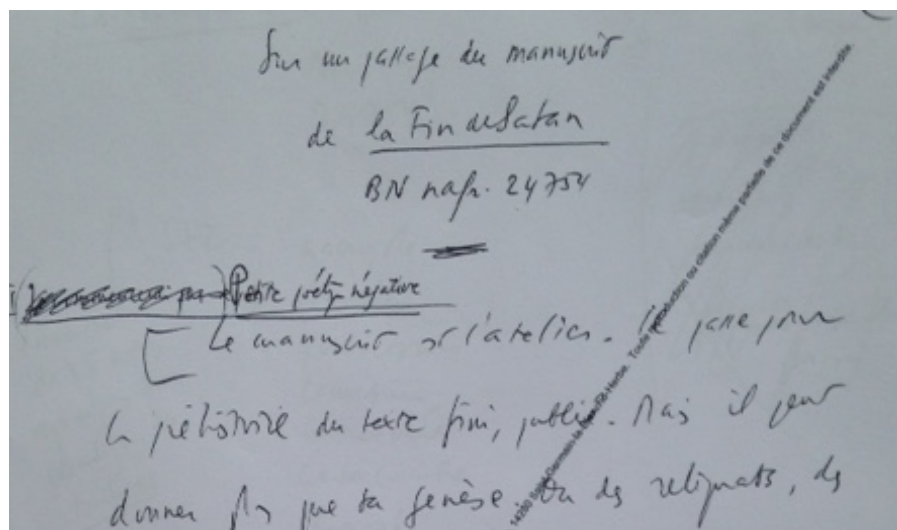 Sur un passage du manuscrit
de la Fin de Satan
BN nafr. 24754
Petite poétique négative
Le manuscrit est l'atelier. Il passe pour
la préhistoire du texte fini, publié. Mais il peut
donner plus que sa genèse. Ou des reliquats, des
14280 Saint-Germain-la-Blanche-Herbe. Toute reproduction ou citation même partielle de ce document est interdite.